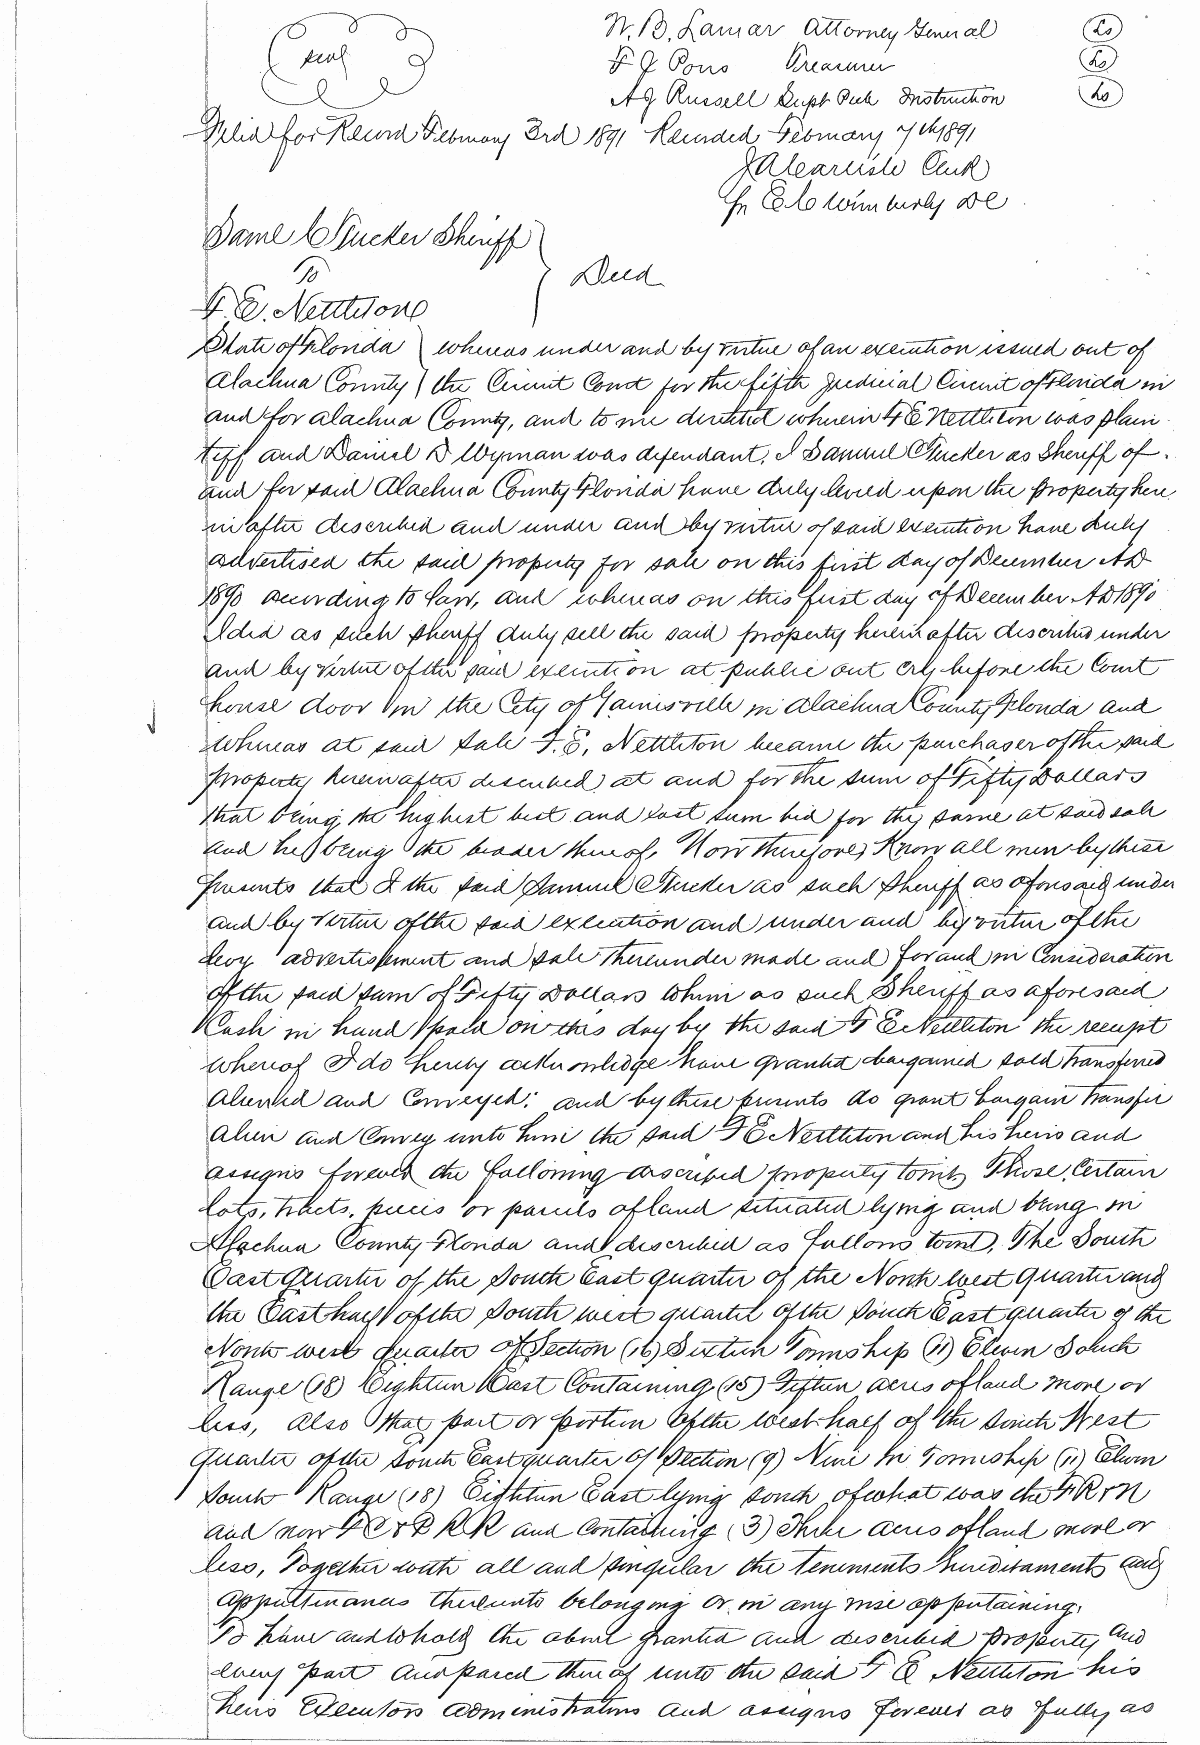 seal
W. B. Lamar Attorney General Ls
F J Pons Treasurer Ls
A J Russell Supt Pub Instruction Ls
Filed for Record February 3rd 1891 Recorded February 7th 1891
J A Carlisle Clerk
pr E C Wimberly DC
Saml C Tucker Sheriff
To
Deed
F. E. Nettleton
State of Florida whereas under and by virtue of an execution issued out of
Alachua County the Circuit Court for the fifth Judicial Circuit of Florida in
and for Alachua County, and to me directed wherein F E Nettleton was plain
tiff and Daniel D Wyman was defendant, I Samuel C Tucker as Sheriff of
and for said Alachua County Florida have duly levied upon the property here
in after described and under and by virtue of said execution have duly
advertised the said property for sale on this first day of December AD
1890 according to law, and whereas on this first day of December AD 1890
I did as such sheriff duly sell the said property herein after described under
and by virtue of the said execution at public out cry before the Court
house door in the City of Gainesville in Alachua County Florida and
whereas at said sale F. E. Nettleton became the purchaser of the said
property herein after described at and for the sum of Fifty Dollars
that being the highest best and last sum bid for the same at said sale
and he being the bidder thereof, Now therefore, Know all men by these
presents that I the said Samuel C Tucker as such Sheriff as aforesaid under
and by virtue of the said execution and under and by virtue of the
levy advertisement and sale thereunder made and for and in Consideration
of the said sum of Fifty Dollars to him as such Sheriff as aforesaid
Cash in hand paid on this day by the said F E Nettleton the receipt
whereof I do hereby acknowledge have granted bargained sold transferred
aliened and Conveyed; and by these presents do grant bargain transfer
alien and Convey unto him the said F E Nettleton and his heirs and
assigns forever the following described property towit, Those Certain
lots, tracts, pieces or parcels of land situated lying and being in
Alachua County Florida and described as follows towit, The South
East quarter of the South East quarter of the North west quarter and
the East half of the South west quarter of the South East quarter of the
North west quarter of Section (16) Sixteen Township (11) Eleven South
Range (18) Eighteen East Containing (15) Fifteen acres of land more or
less, also that part or portion of the west half of the South West
quarter of the South East quarter of Section (9) Nine in Township (11) Eleven
South Range (18) Eighteen East lying south of what was the F R & N
and now F C & P R R and Containing (3) Three acres of land more or
less, Together with all and singular the tenements hereditaments and
appurtenances thereunto belonging or in any wise appertaining,
To have and to hold the above granted and described property and
every part and parcel thereof unto the said F E Nettleton his
heirs Executors administrators and assigns forever as fully as